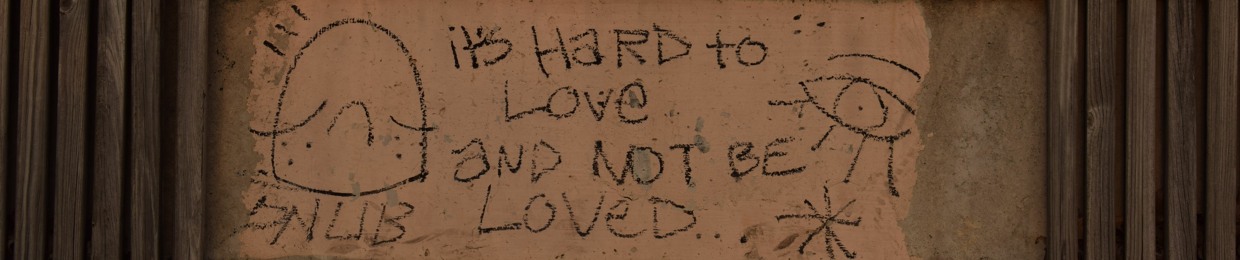 its HaRD to
Love
aND NOT BE
LOVeD...
ENLIB